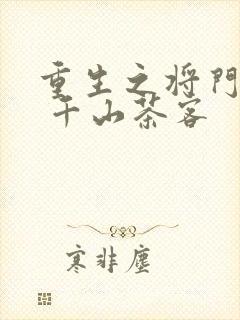 重生之将門
千山茶客
寒非塵